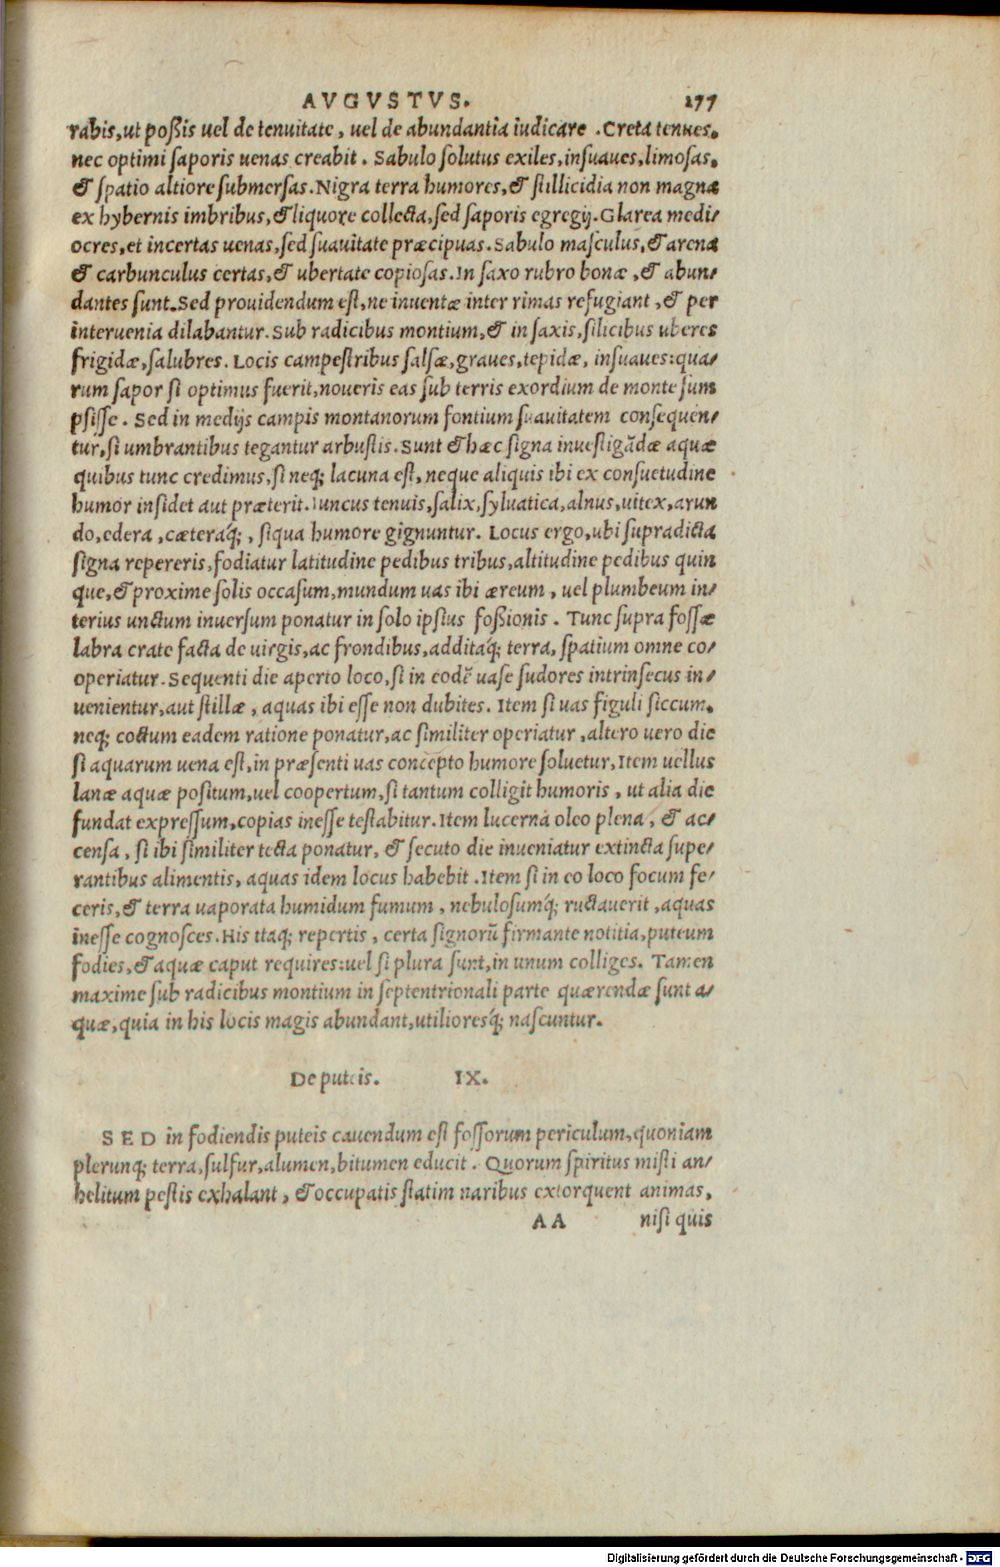 AVGVSTVS. 177
rabis, ut poßis uel de tenuitate, uel de abundantia iudicare. Creta tenues,
nec optimi saporis uenas creabit. Sabulo solutus exiles, insuaues, limosas,
& spatio altiore submersas. Nigra terra humores, & stillicidia non magna
ex hybernis imbribus, & liquore collecta, sed saporis egregij. Glarea medi/
ocres, et incertas uenas, sed suauitate præcipuas. Sabulo masculus, & arena
& carbunculus certas, & ubertate copiosas. In saxo rubro bonæ, & abun/
dantes sunt. Sed prouidendum est, ne inuentæ inter rimas refugiant, & per
interuenia dilabantur. Sub radicibus montium, & in saxis, silicibus uberes
frigidæ, salubres. Locis campestribus salsæ, graues, tepidæ, insuaues: qua/
rum sapor si optimus fuerit, noueris eas sub terris exordium de monte sum
psisse. Sed in medijs campis montanorum fontium suauitatem consequen/
tur, si umbrantibus tegantur arbustis. Sunt & hæc signa inuestigādæ aquæ
quibus tunc credimus, si neq; lacuna est, neque aliquis ibi ex consuetudine
humor insidet aut præterit. Iuncus tenuis, salix, syluatica, alnus, uitex, arun
do, edera, cæteraq́;, siqua humore gignuntur. Locus ergo, ubi supradicta
signa repereris, fodiatur latitudine pedibus tribus, altitudine pedibus quin
que, & proxime solis occasum, mundum uas ibi æreum, uel plumbeum in/
terius unctum inuersum ponatur in solo ipsius foßionis. Tunc supra fossæ
labra crate facta de uirgis, ac frondibus, additaq́; terra, spatium omne co/
operiatur. Sequenti die aperto loco, si in eodē uase sudores intrinsecus in/
uenientur, aut stillæ, aquas ibi esse non dubites. Item si uas figuli siccum,
neq; coctum eadem ratione ponatur, ac similiter operiatur, altero uero die
si aquarum uena est, in præsenti uas concepto humore soluetur, Item uellus
lanæ aquæ positum, uel coopertum, si tantum colligit humoris, ut alia die
fundat expressum, copias inesse testabitur. Item lucerna oleo plena, & ac/
censa, si ibi similiter tecta ponatur, & secuto die inueniatur extincta supe/
rantibus alimentis, aquas idem locus habebit. Item si in eo loco focum fe/
ceris, & terra uaporata humidum fumum, nebulosumq́; ructauerit, aquas
inesse cognosces. His itaq; repertis, certa signorū firmante notitia, puteum
fodies, & aquæ caput requires: uel si plura sunt, in unum colliges. Tamen
maxime sub radicibus montium in septentrionali parte quærendæ sunt a/
quæ, quia in his locis magis abundant, utilioresq́; nascuntur.
De puteis. IX.
SED in fodiendis puteis cauendum est fossorum periculum, quoniam
plerunq; terra, sulfur, alumen, bitumen educit. Quorum spiritus misti an/
helitum pestis exhalant, & occupatis statim naribus extorquent animas,
AA nisi quis
Digitalisierung gefördert durch die Deutsche Forschungsgemeinschaft - DFG